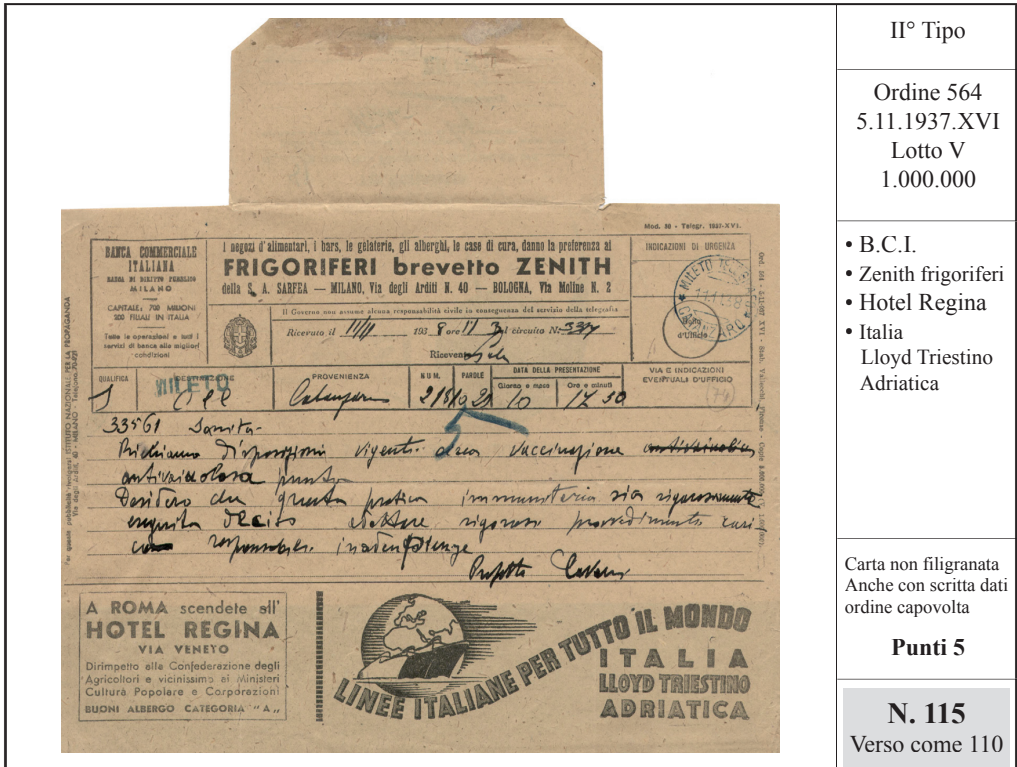 Mod. 30 - Telegr. 1937-XVI.
BANCA COMMERCIALE
ITALIANA
BANCA DI DIRITTO PUBBLICO
MILANO
CAPITALE: 700 MILIONI
200 FILIALI IN ITALIA
Tutte le operazioni e tutti i
servizi di banca alle migliori
condizioni
I negozi d'alimentari, i bars, le gelaterie, gli alberghi, le case di cura, danno la preferenza ai
FRIGORIFERI brevetto ZENITH
della S. A. SARFEA — MILANO, Via degli Arditi N. 40 — BOLOGNA, Via Moline N. 2
Il Governo non assume alcuna responsabilità civile in conseguenza del servizio della telegrafia
Ricevuto il 11/11 193 8 ore 17 3 pel circuito N. 3374
Ricevente
INDICAZIONI DI URGENZA
MILETO
CATANZARO
d'Ufficio
QUALIFICA
DESTINAZIONE
PROVENIENZA
NUM.
PAROLE
DATA DELLA PRESENTAZIONE
Giorno e mese
Ore e minuti
VIA E INDICAZIONI
EVENTUALI D'UFFICIO
MILETO
Catanzaro
10
17 50
(74)
33561 Sanità-
Richiamo disposizioni vigenti circa vaccinazione
antivaiolosa punto
Desidero che questa pratica immunitaria sia rigorosamente
eseguita deciso adottare rigorosi provvedimenti
responsabili inadempienze
Prefetto
Per questa pubblicità rivolgersi ISTITUTO NAZIONALE PER LA PROPAGANDA
Via degli Arditi, 40 - MILANO
A ROMA scendete all'
HOTEL REGINA
VIA VENETO
Dirimpetto alla Confederazione degli
Agricoltori e vicinissimo ai Ministeri
Cultura Popolare e Corporazioni
BUONI ALBERGO CATEGORIA "A„
LINEE ITALIANE PER TUTTO IL MONDO
ITALIA
LLOYD TRIESTINO
ADRIATICA
II° Tipo
Ordine 564
5.11.1937.XVI
Lotto V
1.000.000
• B.C.I.
• Zenith frigoriferi
• Hotel Regina
• Italia
Lloyd Triestino
Adriatica
Carta non filigranata
Anche con scritta dati
ordine capovolta
Punti 5
N. 115
Verso come 110